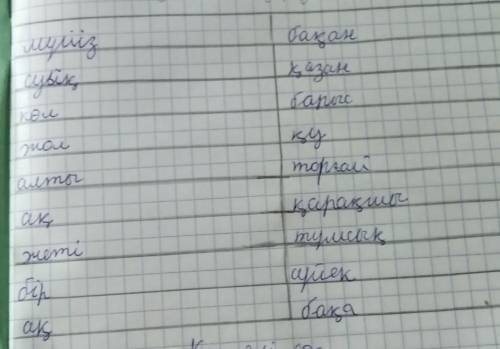 мүйіз бақан
суық қазан
көл барыс
жол қу
алты торғай
ақ қарақшы
жеті тұмсық
бір әйтек
ақ бақа